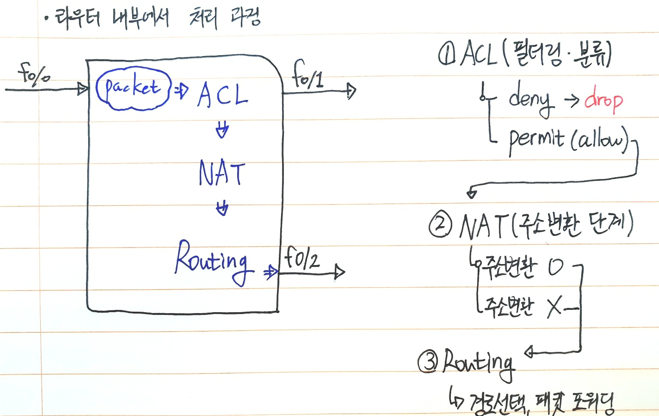 · 라우터 내부에서 처리 과정
f0/0
packet ⇒ ACL
f0/1
NAT
Routing ⇒ f0/2
① ACL (필터링·분류)
deny → drop
permit (allow)
② NAT (주소변환 단계)
주소변환 O
주소변환 X
③ Routing
↳ 경로선택, 패킷 포워딩